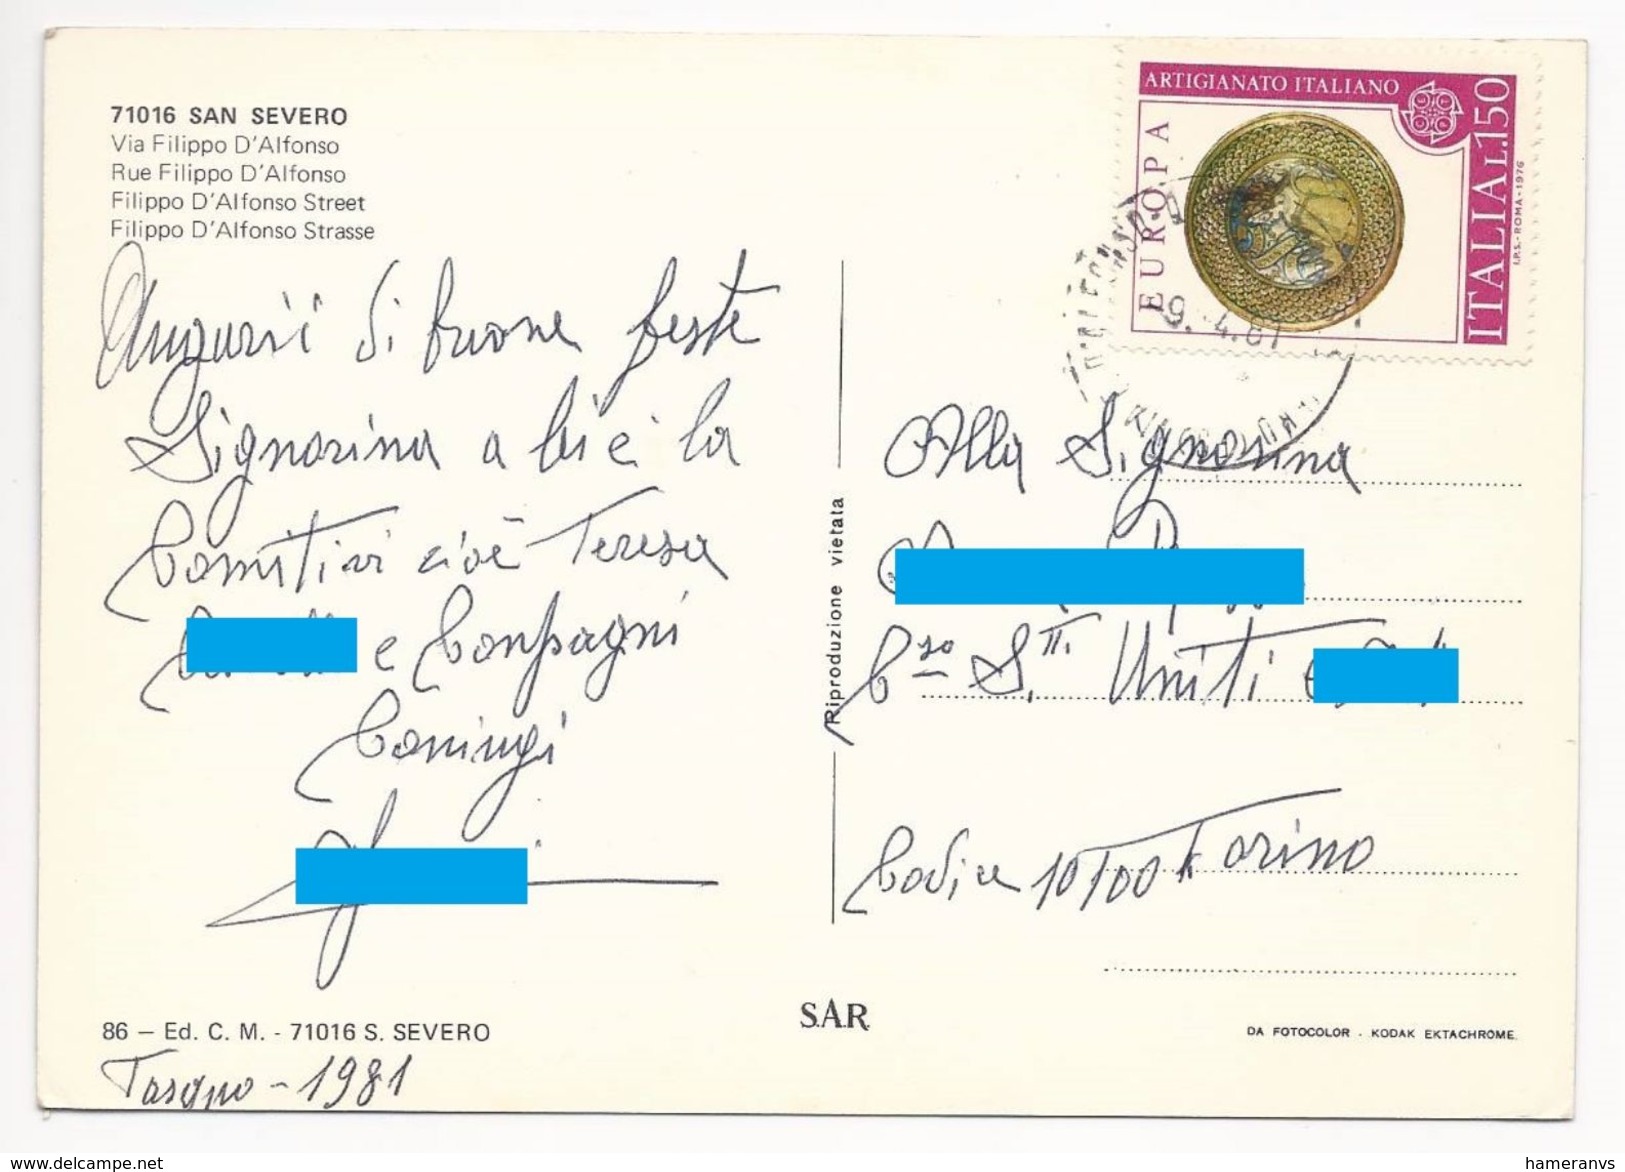 71016 SAN SEVERO
Via Filippo D'Alfonso
Rue Filippo D'Alfonso
Filippo D'Alfonso Street
Filippo D'Alfonso Strasse
Augurii di buone feste
Signorina a lei e la
Comitivi cioè Teresa
e Conpagni
86 — Ed. C. M. - 71016 S. SEVERO
1981
Riproduzione vietata
S.A.R.
ARTIGIANATO ITALIANO
EUROPA
ITALIA L.150
I.P.S. - ROMA - 1976
Alla Signorina
C.so S.ti Uniti
Codice 10100 Torino
DA FOTOCOLOR - KODAK EKTACHROME.
www.delcampe.net
hameranvs